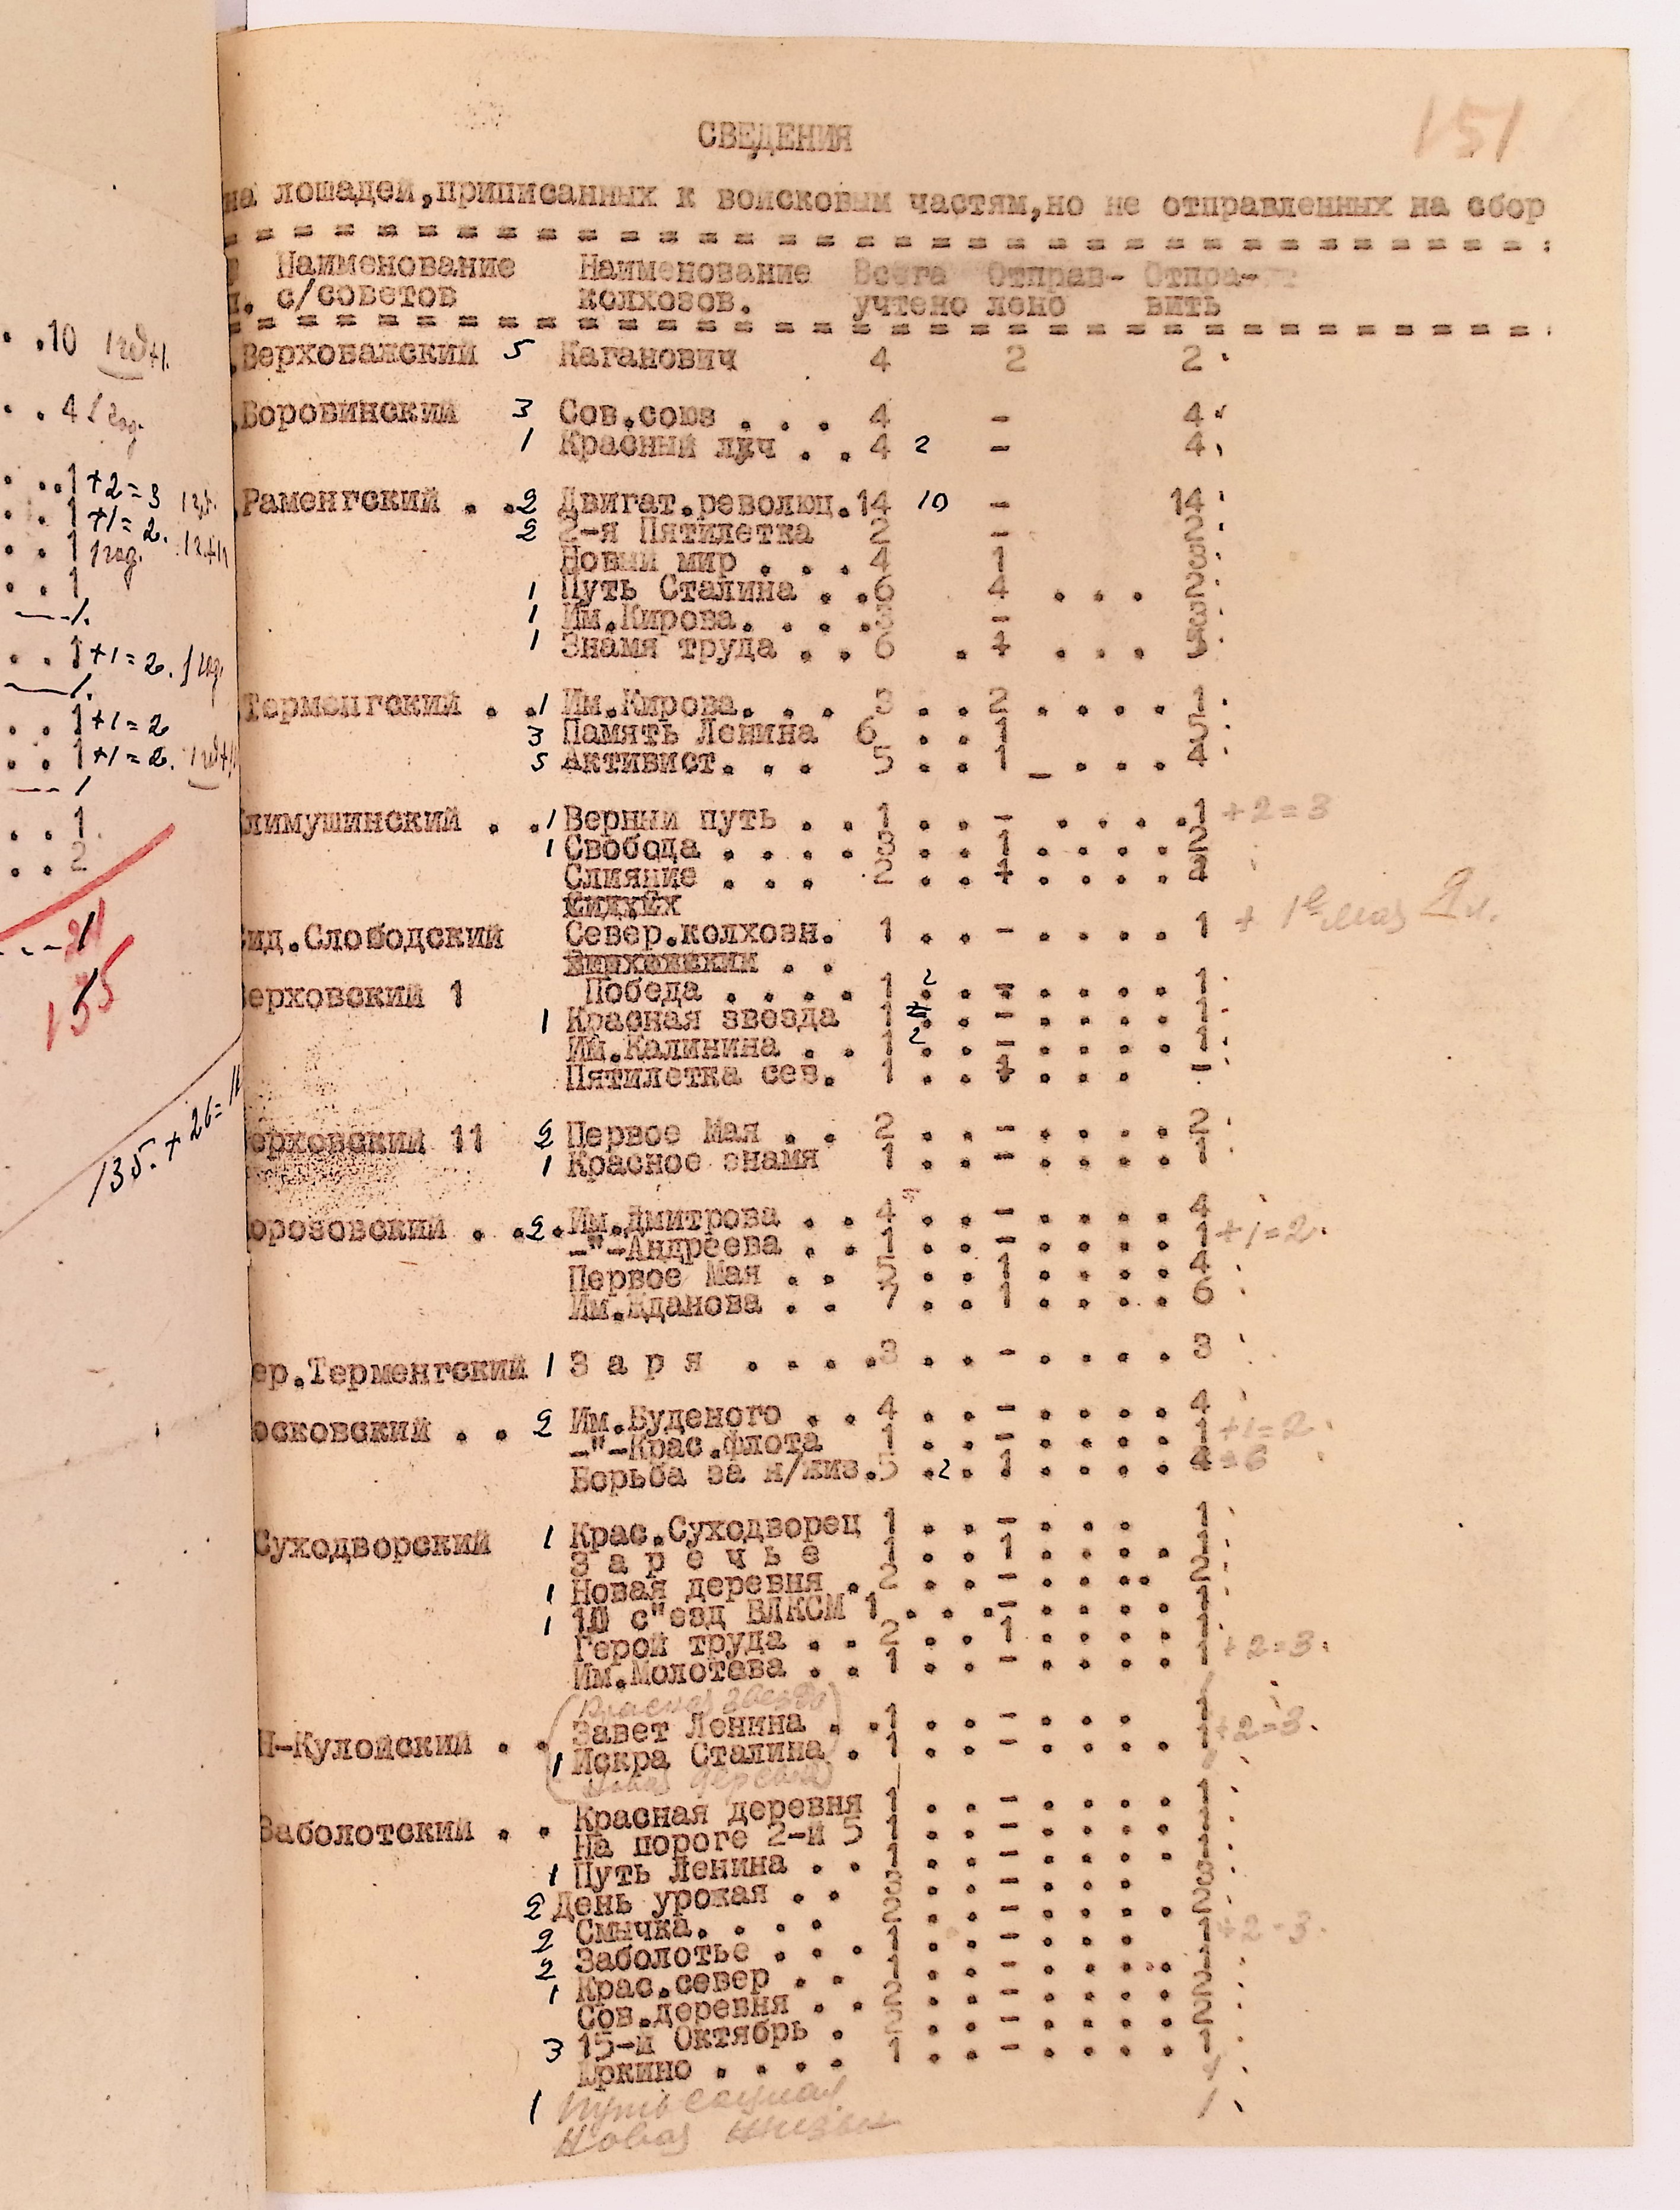 151
СВЕДЕНИЯ
на лошадей,приписанных к войсковым частям,но не отправленных на сбор
= = = = = = = = = = = = = = = = = = = = = = = = = = = = = = = = = = =
Наименование Наименование Всега Отправ- Отпра-
с/советов колхозов. учтено лено вить
= = = = = = = = = = = = = = = = = = = = = = = = = = = = = = = = = = =
Верховажский 5 Каганович 4 2 2
Боровинский 3 Сов.союз . . . 4 - 4
1 Красный луч . . 4 2 - 4
Раменгский . . 2 Двигат.революц.14 10 - 14
2 2-я Пятилетка 2 - 2
Новый мир . . . 4 1 3
1 Путь Сталина . . 6 4 . . . 2
1 Им.Кирова. . . . 3 - 3
1 Знамя труда . . 6 . . . . 5
Терменгский . . 1 Им.Кирова. . . . 3 . . 2 . . . . 1
3 Память Ленина 6 . . 1 5
5 Активист. . . 5 . . 1 _ . . . 4
лимушинский . . 1 Верный путь . . 1 . . - . . . . 1 +2=3
1 Свобода . . . . 3 . . 1 . . . . 2
Слияние . . . 2 . . . . . .
ид.Слободский Север.колхозн. 1 . . - . . . . 1
ерховский 1 Победа . . . . 1 2 . . - . . . . 1
1 Красная звезда 1 . . - . . . . 1
Им.Калинина . . 1 2 . . - . . . . 1
Пятилетка сев. 1 . . . . . -
ерховский 11 2 Первое Мая . . 2 . . - . . . . 2
1 Красное знамя 1 . . - . . . . 1
орозовский . . 2. Им.Дмитрова . . 4 . . - . . . . 4
-"-Андреева . . 1 . . - . . . . 1 +1=2.
Первое Мая . . 5 . . 1 . . . . 4
Им.Жданова . . 7 . . 1 . . . . 6
ер.Терменгский 1 З а р я . . . . 3 . . - . . . . 3
осковский . . 2 Им.Буденого . . 4 . . - . . . . 4
-"-Крас.флота 1 . . - . . . . 1 +1=2
Борьба за н/жиз.5 . 2 . 1 . . . . 4 =6
Суходворский 1 Крас.Суходворец 1 . . - . . . 1
З а р е ч ь е 1 . . 1 . . . . 1
1 Новая деревня . 2 . . - . . . . 2
1 10 с"езд ВЛКСМ 1 . . . - . . . . 1
Герой труда . . 2 . . 1 . . . . 1
Им.Молотава . . 1 . . - . . . . 1 +2=3.
Красная звезда
Н-Кулойский . . Завет Ленина . . 1 . . - . . . 1
1 Искра Сталина . 1 . . - . . . . 1 +2=3.
Новая деревня
Заболотский . . Красная деревня 1 . . - . . . . 1
На пороге 2-й 5 1 . . - . . . . 1
1 Путь Ленина . . 1 . . - . . . . 1
2 День урожая . . 3 . . - . . . 3
2 Смычка. . . . 2 . . - . . . . 2
2 Заболотье . . . 1 . . - . . . 1 +2=3.
1 Крас.север . . 1 . . - . . . . 1
Сов.деревня . . 2 . . - . . . . 2
3 15-й Октябрь . 2 . . - . . . . 2
Юркино . . . . 1 . . - . . . . 1
1 Путь
Новая жизнь
. .10
. . 4 1 год.
. . .1 +2=3
. . 1 +1=2.
. . 1 1 год.
. . 1
. . 1 +1=2. 1 год.
. . 1 +1=2
. . 1 +1=2.
. . 1
. . 2
135